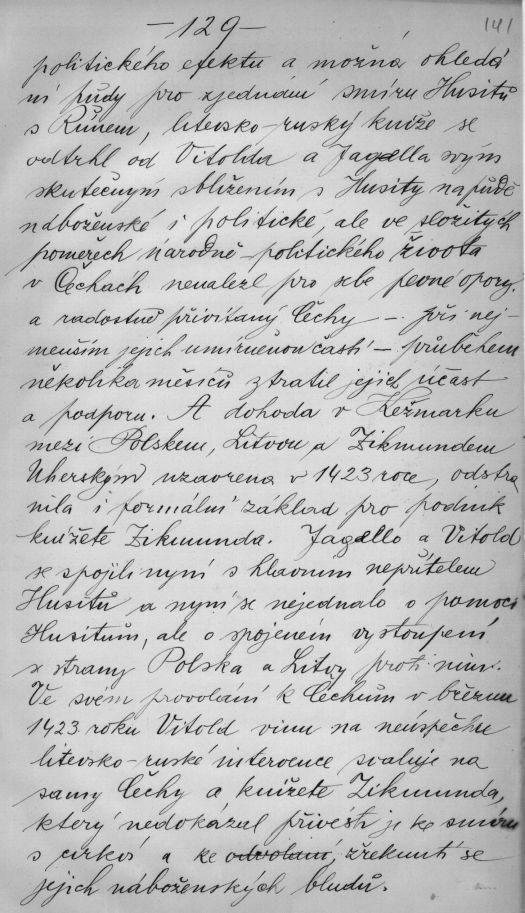 — 129 —
141
politického efektu a možná ohledá
ní půdy pro zjednání smíru Husitů
s Římem, litevsko-ruský kníže se
odtrhl od Vitolda a Jagella svým
skutečným sblížením s Husity na půdě
náboženské i politické, ale ve složitých
poměrech národně-politického života
v Čechách nenalezl pro sebe pevné opory
a radostně přivítaný Čechy — při nej-
menším jejich umírněnou částí — průběhem
několika měsíců ztratil jejich účast
a podporu. A dohoda v Kežmarku
mezi Polskem, Litvou a Zikmundem
Uherským uzavřena v 1423 roce, odstra
nila i formální základ pro podnik
knížete Zikmunda. Jagello a Vitold
se spojili nyní s hlavním nepřítelem
Husitů a nyní se nejednalo o pomoci
Husitům, ale o spojeném vystoupení
se strany Polska a Litvy proti nim.
Ve svém provolání k Čechům v březnu
1423 roku Vitold vinu na neúspěchu
litevsko-ruské intervence svaluje na
samy Čechy a knížete Zikmunda,
který nedokázal přivésti je ke smíru
s církví a ke odvolání, zřeknutí se
jejich náboženských bludů.